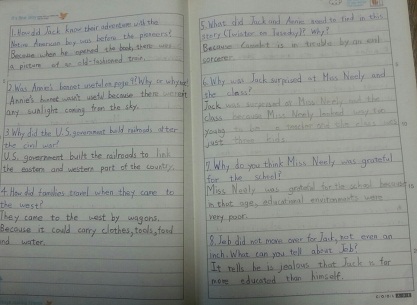 1. How did Jack know their adventure with the
Native American boy was before the pioneers?
Because when he opened the book, there was
a picture of an old-fashioned train.
2. Was Annie's bonnet useful on page 7? Why or why not?
Annie's bonnet wasn't useful because there weren't
any sunlight coming from the sky.
3. Why did the U.S. government build railroads after
the civil war?
U.S. government built the railroads to link
the eastern and western part of the country.
4. How did families travel when they came to
the west?
They came to the west by wagons.
Because it could carry clothes, tools, food
and water.
5. What did Jack and Annie need to find in this
story (Twister on Tuesday)? Why?
Because Camelot is in trouble by an evil
sorcerer.
6. Why was Jack surprised at Miss Neely and
the class?
Jack was surprised at Miss Neely and the
class because Miss Neely looked way too
young to be a teacher and the class was
just three kids.
7. Why do you think Miss Neely was grateful
for the school?
Miss Neely was grateful for the school because
in that age, educational environments were
very poor.
8. Jeb did not move over for Jack, not even an
inch. What can you tell about Jeb?
It tells he is jealous that Jack is far
more educated than himself.